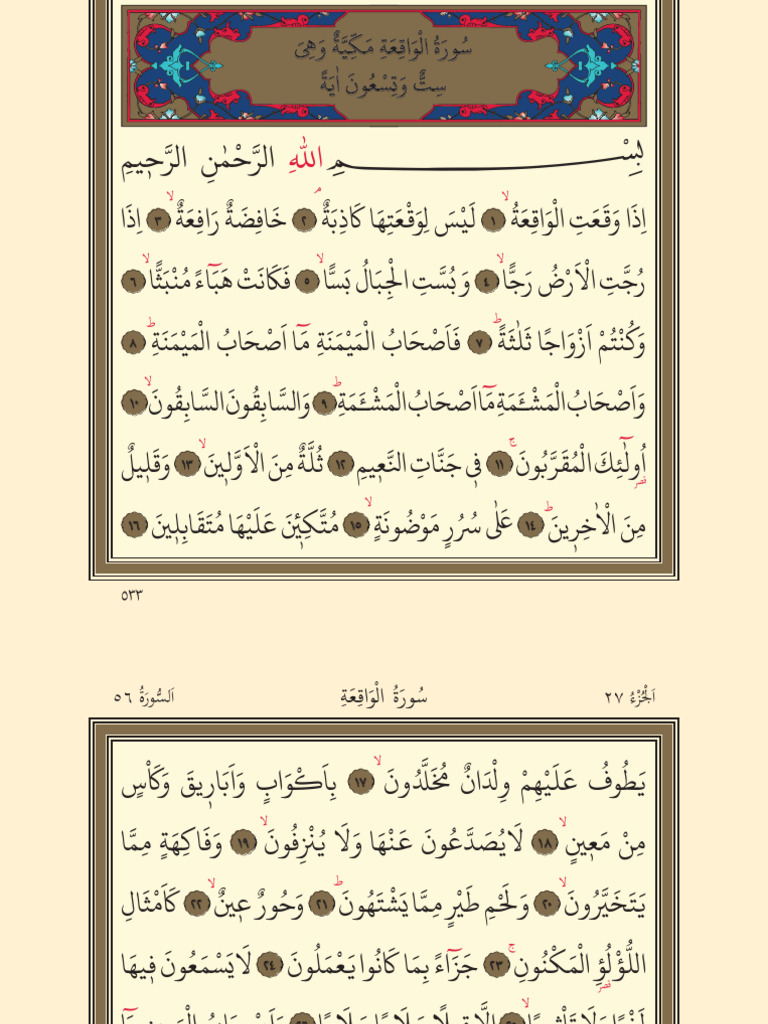 سُورَةُ الْوَاقِعَةِ مَكِّيَّةٌ وَهِىَ
سِتٌّ وَتِسْعُونَ اٰيَةً
بِسْمِ اللّٰهِ الرَّحْمٰنِ الرَّح۪يمِ
اِذَا وَقَعَتِ الْوَاقِعَةُۙ ﴿١﴾ لَيْسَ لِوَقْعَتِهَا كَاذِبَةٌۢ ﴿٢﴾ خَافِضَةٌ رَافِعَةٌۙ ﴿٣﴾ اِذَا
رُجَّتِ الْاَرْضُ رَجًّاۙ ﴿٤﴾ وَبُسَّتِ الْجِبَالُ بَسًّاۙ ﴿٥﴾ فَكَانَتْ هَبَٓاءً مُنْبَثًّاۙ ﴿٦﴾
وَكُنْتُمْ اَزْوَاجًا ثَلٰثَةًۜ ﴿٧﴾ فَاَصْحَابُ الْمَيْمَنَةِ مَٓا اَصْحَابُ الْمَيْمَنَةِۜ ﴿٨﴾
وَاَصْحَابُ الْمَشْـَٔمَةِ مَٓا اَصْحَابُ الْمَشْـَٔمَةِۜ ﴿٩﴾ وَالسَّابِقُونَ السَّابِقُونَۙ ﴿١٠﴾
اُو۬لٰٓئِكَ الْمُقَرَّبُونَۚ ﴿١١﴾ ف۪ى جَنَّاتِ النَّع۪يمِ ﴿١٢﴾ ثُلَّةٌ مِنَ الْاَوَّل۪ينَۙ ﴿١٣﴾ وَقَل۪يلٌ
مِنَ الْاٰخِر۪ينَۜ ﴿١٤﴾ عَلٰى سُرُرٍ مَوْضُونَةٍۙ ﴿١٥﴾ مُتَّكِـ۪ٔينَ عَلَيْهَا مُتَقَابِل۪ينَ ﴿١٦﴾
٥٣٣
اَلْجُزْءُ ٢٧ سُورَةُ الْوَاقِعَةِ اَلسُّورَةُ ٥٦
يَطُوفُ عَلَيْهِمْ وِلْدَانٌ مُخَلَّدُونَۙ ﴿١٧﴾ بِاَكْوَابٍ وَاَبَار۪يقَ وَكَاْسٍ
مِنْ مَع۪ينٍۙ ﴿١٨﴾ لَا يُصَدَّعُونَ عَنْهَا وَلَا يُنْزِفُونَۙ ﴿١٩﴾ وَفَاكِهَةٍ مِمَّا
يَتَخَيَّرُونَۙ ﴿٢٠﴾ وَلَحْمِ طَيْرٍ مِمَّا يَشْتَهُونَۜ ﴿٢١﴾ وَحُورٌ ع۪ينٌۙ ﴿٢٢﴾ كَاَمْثَالِ
اللُّؤْلُؤِ الْمَكْنُونِۚ ﴿٢٣﴾ جَزَٓاءً بِمَا كَانُوا يَعْمَلُونَ ﴿٢٤﴾ لَا يَسْمَعُونَ ف۪يهَا